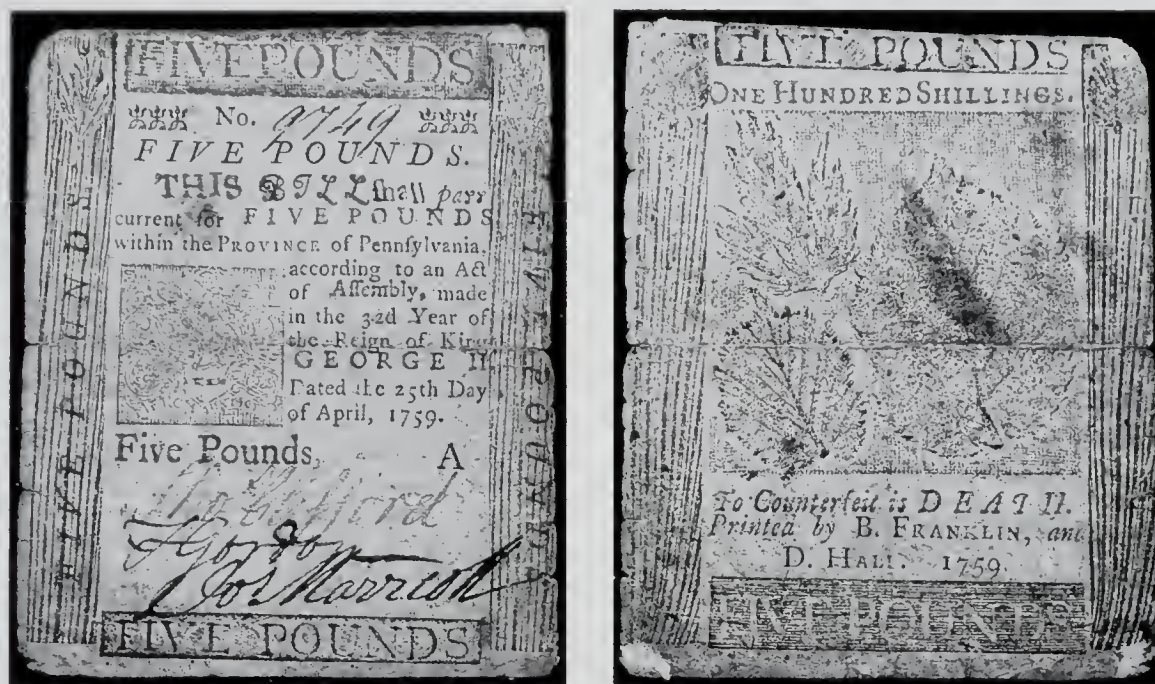 FIVE POUNDS
No. 9749
FIVE POUNDS.
THIS BILL ſhall paſs
current for FIVE POUNDS
within the PROVINCE of Pennſylvania,
according to an Act
of Aſſembly, made
in the 32d Year of
the Reign of King
GEORGE II.
Dated the 25th Day
of April, 1759.
Five Pounds. A
Gordon
Jos Marriott
FIVE POUNDS
FIVE POUNDS
FIVE POUNDS
FIVE POUNDS
ONE HUNDRED SHILLINGS.
To Counterfeit is DEATH.
Printed by B. FRANKLIN, and
D. HALL. 1759
FIVE POUNDS